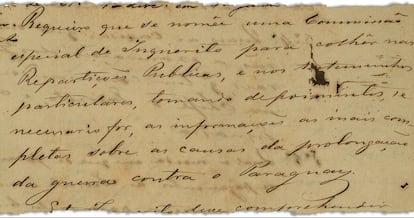 Requeiro que se nomêe uma Commissão
especial de Inquerito para colhêr nas
Repartições Publicas, e nos testemunhos
particulares, tomando depoimentos, se
necessario for, as informações as mais com-
pletas sobre as causas da prolongação
da guerra contra o Paraguay.
comprehender